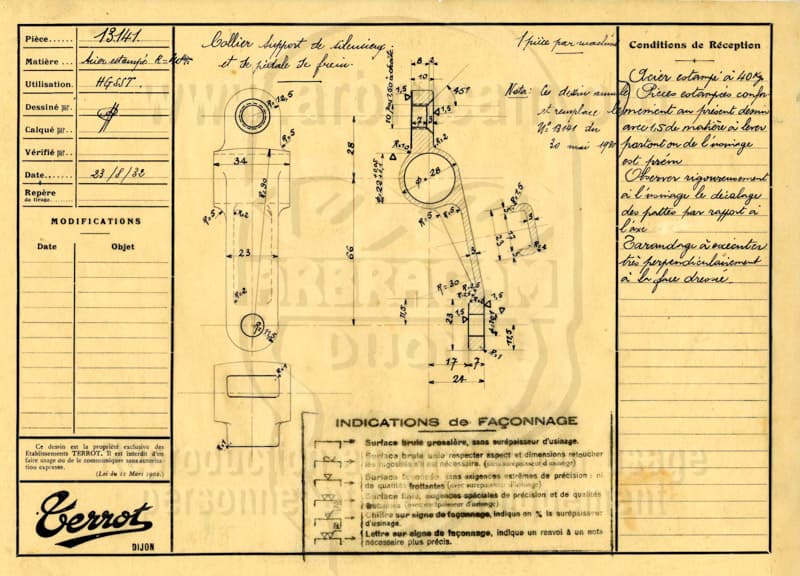 Pièce 13.141.
Matière Acier estampé R=
Utilisation HGSST
Dessiné par
Calqué par
Vérifié par
Date 23/8/32
Repère
de tirage
MODIFICATIONS
Date Objet
Ce dessin est la propriété exclusive des
Etablissements TERROT. Il est interdit d'en
faire usage ou de le communiquer sans autorisa-
tion expresse.
(Loi du 11 Mars 1902.)
Terrot
DIJON
Collier support de silencieux
et de pédale de frein.
1 pièce par machine
Nota: ce dessin annule
et remplace le
N° B141 du
30 mai 1930
R=12,5
R=5
34
R=30
R=5
R=2
23
R=2
11,5
28
66
8 2
10
1,5
45°
7 3
R=10
R=2
φ=28
R=5
R=5
3
R=30
R=2,5
1,5
1,5
23
11,5
R=1
17 7
24
INDICATIONS de FAÇONNAGE
Surface brute grossière, sans surépaisseur d'usinage.
Surface brute unie respecter aspect et dimensions retoucher
les rugosités s'il est nécessaire. (sans surépaisseur d'usinage)
Surface façonnée, sans exigences extrêmes de précision : ni
de qualités frottantes (avec surépaisseur d'usinage)
Surface finie, exigences spéciales de précision et de qualités
frottantes (avec surépaisseur d'usinage)
Chiffre sur signe de façonnage, indique en % la surépaisseur
d'usinage.
Lettre sur signe de façonnage, indique un renvoi à un nota
nécessaire plus précis.
Conditions de Réception
Acier estampé à 40 Kg
Pièces estampées confor
mément au présent dessin
avec 1,5 de matière à lever
partout ou de l'usinage
est prévu
Observer rigoureusement
à l'usinage le décalage
des pattes par rapport à
l'axe
Taraudage à exécuter
très perpendiculairement
à la face dressée.